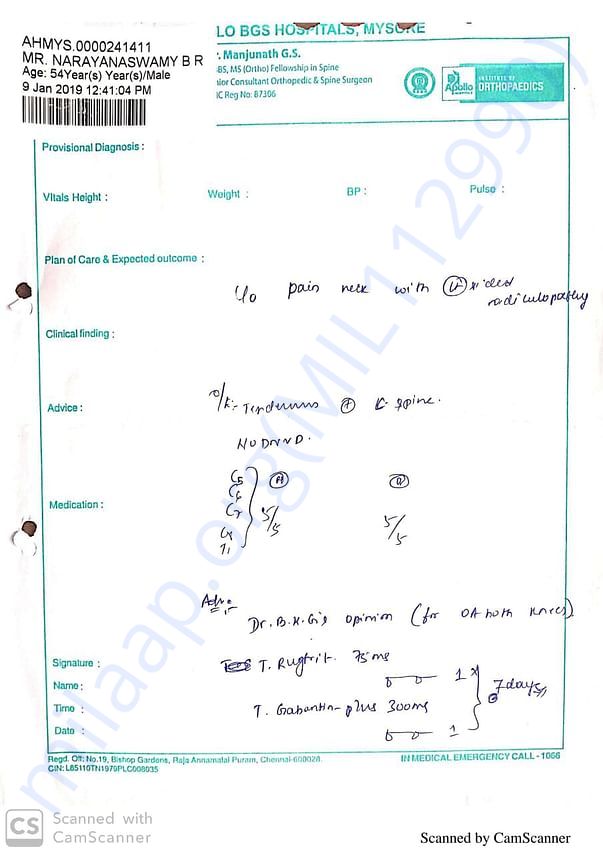 LO BGS HOSPITALS, MYSORE
AHMYS.0000241411
MR. NARAYANASWAMY B R
Age: 54Year(s) Year(s)/Male
9 Jan 2019 12:41:04 PM
. Manjunath G.S.
BS, MS (Ortho) Fellowship in Spine
ior Consultant Orthopedic & Spine Surgeon
C Reg No: 87306
Apollo
INSTITUTE OF
ORTHOPAEDICS
Provisional Diagnosis :
Vitals Height :
Weight :
BP :
Pulse :
Plan of Care & Expected outcome :
pain neck with sided
radiculopathy
Clinical finding :
Advice :
+ C-spine.
NO DNVD.
Medication :
C5
C6
C7
C8
T1
5/5
5/5
Adv:-
Dr. B.K.G's opinion (for OA both knees)
Signature :
75 mg
1 x
7 days
Name :
Time :
T. Gabantin-plus 300mg
1
Date :
Regd. Off: No.19, Bishop Gardens, Raja Annamalai Puram, Chennai-600028.
CIN: L85110TN1979PLC008035
IN MEDICAL EMERGENCY CALL - 1066
milaap.org(MIL112990)
CS Scanned with
CamScanner
Scanned by CamScanner